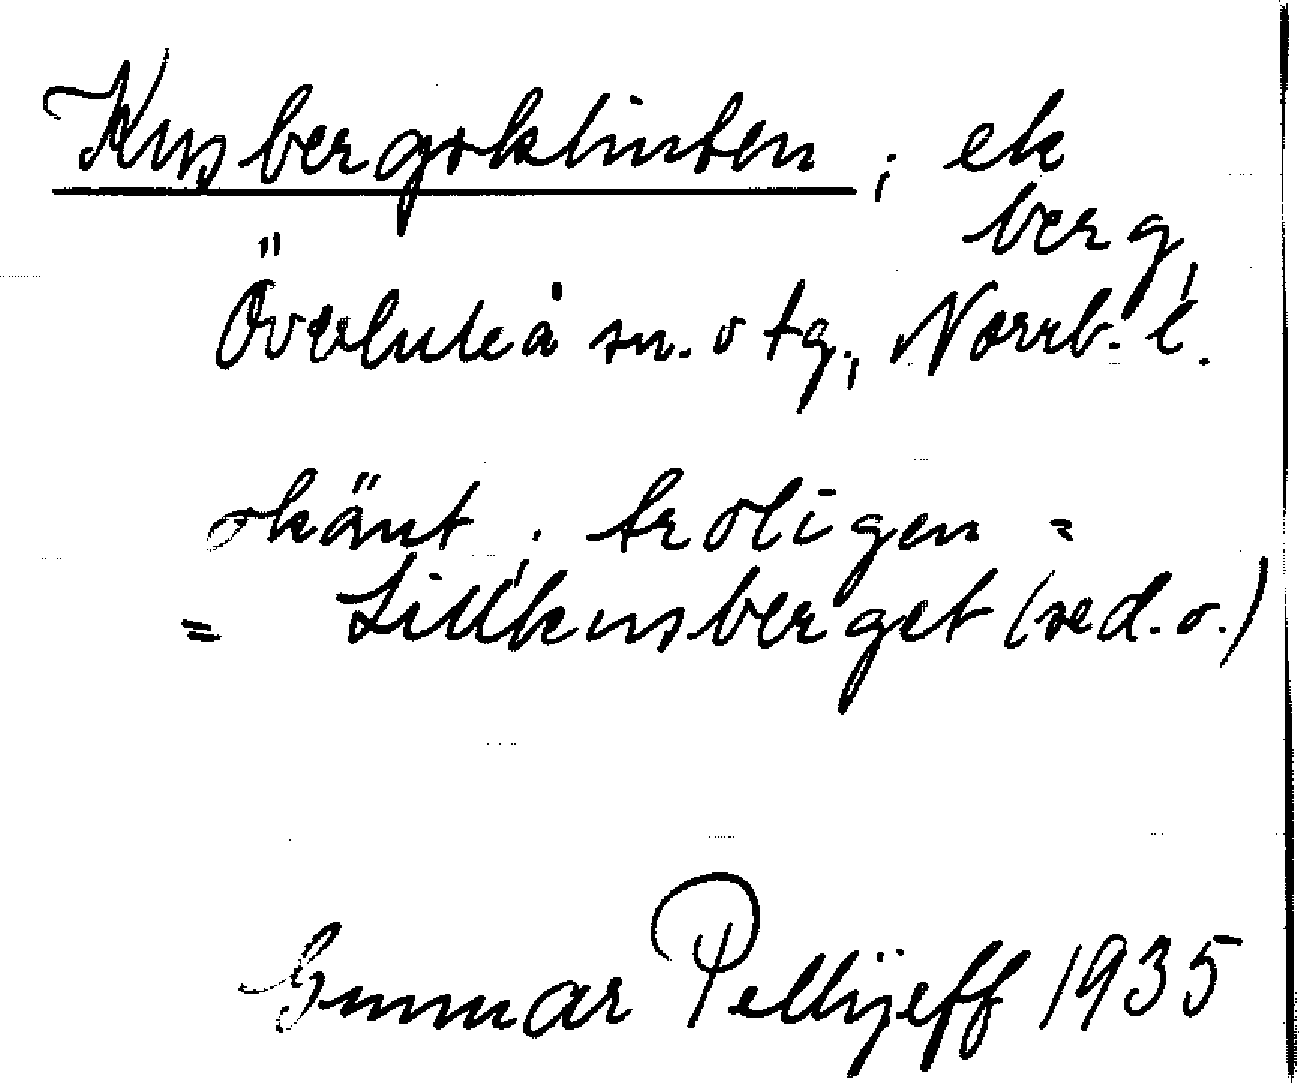 Kusbergsklinten, ek
berg,
Överluleå sn. o tg., Norrb. l.
okänt, troligen =
= Lillkusberget (sed. o.)
Gunnar Pellijeff 1935